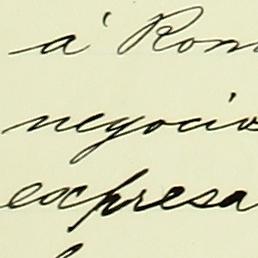 á Rom
negocio
expresa